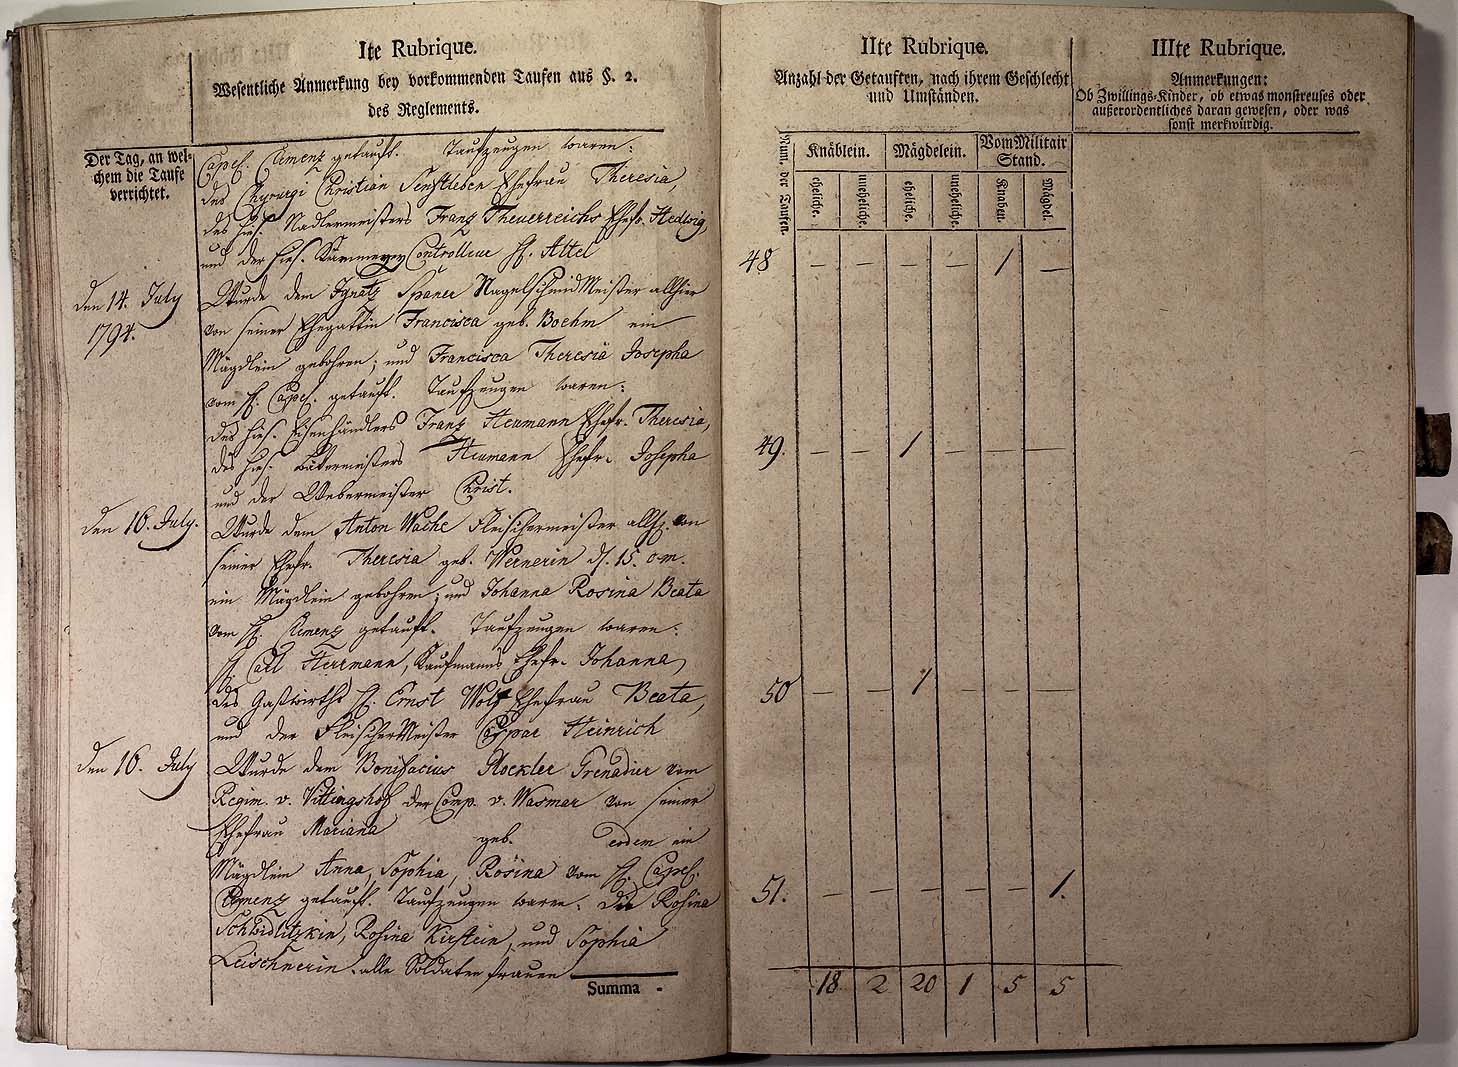 Ite Rubrique.
Wesentliche Anmerkung bey vorkommenden Taufen aus §. 2.
des Reglements.
Der Tag, an wel-
chem die Taufe
verrichtet.
Capel. Clemenz getauft. Taufzeugen waren:
des Chyrurgi Christian Senftleben Ehefrau Theresia,
des hies. Nadlermeisters Franz Theuerreichs Ehefr. Hedwig,
und der hies. Controlleur H. Altel
den 14. July
1794.
Wurde dem Ignatz Spaner Nagelschmid Meister allhier
von seiner Ehegattin Francisca geb. Boehm ein
Mägdlein gebohren; und Francisca Theresia Josepha
vom H. Capel. getauft. Taufzeugen waren:
des hies. Eisenhändlers Franz Heumann Ehefr. Theresia,
des hies. Heumann Ehefr. Josepha
und der Webermeister Christ.
den 16. July.
Wurde dem Anton Wache Fleischermeister allh. von
seiner Ehefr. Theresia geb. Wernerin d. 15. om.
ein Mägdlein gebohren; und Johanna Rosina Beata
vom H. Clemenz getauft. Taufzeugen waren:
H. Carl Herrmann, Kaufmanns Ehefr. Johanna,
des Gastwirths H. Ernst Wolf Ehefrau Beata,
und der Fleischer Meister Caspar Heinrich
den 16. July
Wurde dem Bonifacius Glockler Grenadier vom
Regim. v. Vittingshof der Comp. v. Wasmer von seiner
Ehefrau Mariana geb. eodem ein
Mägdlein Anna, Sophia, Rosina vom H. Capel.
Clemenz getauft. Taufzeugen waren: die Rosina
Schwidlitzkin, Rosina Kirstein, und Sophia
Leischnerin. alle Soldaten frauen
Summa -
IIte Rubrique.
Anzahl der Getauften, nach ihrem Geschlecht
und Umständen.
Num. der Taufen.
Knäblein. Mägdelein. Vom Militair
Stand.
eheliche. uneheliche. eheliche. uneheliche. Knaben. Mägdel.
48 — — — — 1 —
49. — — 1 — — —
50 — — 1 — — —
51. — — — — — 1.
18 2 20 1 5 5
IIIte Rubrique.
Anmerkungen:
Ob Zwillings-Kinder, ob etwas monstreuses oder
außerordentliches daran gewesen, oder was
sonst merkwürdig.